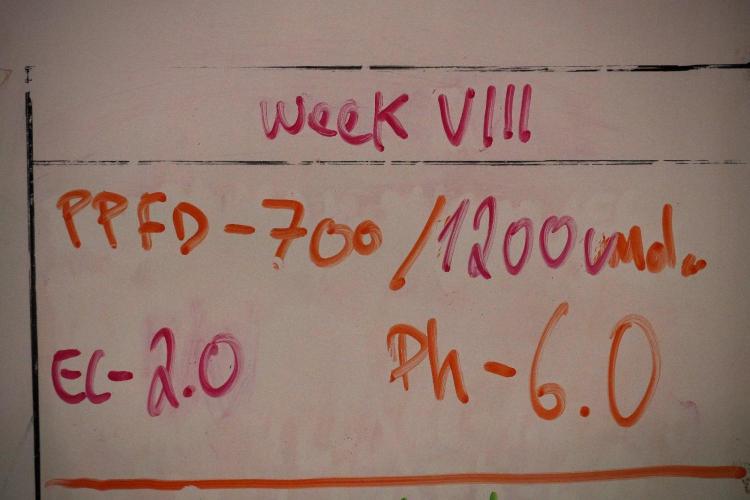 Week VIII
PPFD-700/1200uMol.
EC-2.0 Ph-6.0